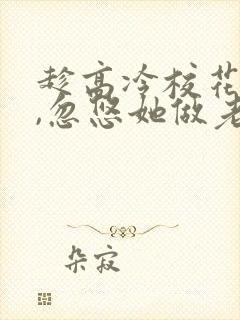 趁高冷校花
,忽悠她做老
朵寂